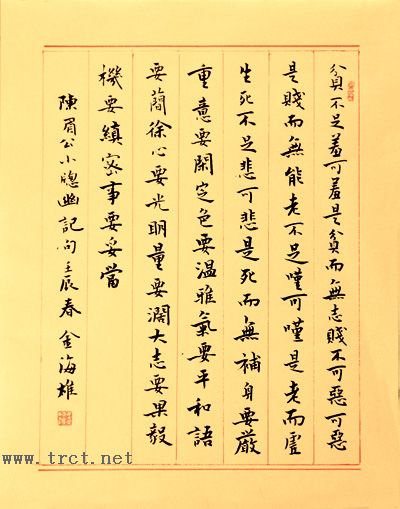 貧不足羞可羞是貧而無志賤不可惡可惡
是賤而無能老不足嘆可嘆是老而虛
生死不足悲可悲是死而無補身要嚴
重意要閑定色要溫雅氣要平和語
要簡徐心要光明量要濶大志要果毅
機要縝密事要妥當
陳眉公小牕幽記句壬辰春金海雄
www.trct.net